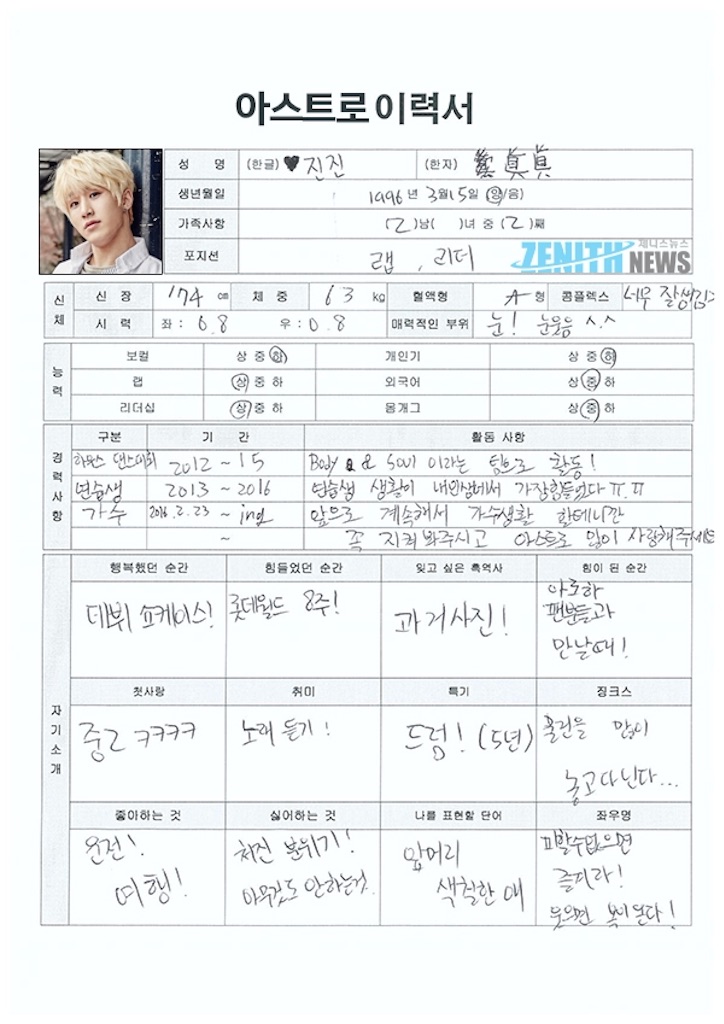 아스트로 이력서
성 명 (한글) ♥진진 (한자) 眞眞
생년월일 1996년 3월 15일 (양/음)
가족사항 (2)남( )녀 중 (2)째
포지션 랩, 리더
ZENITH NEWS 제니스뉴스
신체
신 장 174 cm 체 중 63 kg 혈액형 A형 콤플렉스 너무 잘생김
시 력 좌: 0.8 우: 0.8 매력적인 부위 눈! 눈웃음 ^.^
능력
보컬 상 중 하 개인기 상 중 하
랩 상 중 하 외국어 상 중 하
리더십 상 중 하 몽개그 상 중 하
경력사항
구분 기 간 활동 사항
하우스 댄스대회 2012 ~ 15 Body & Soul 이라는 팀으로 활동!
연습생 2013 ~ 2016 연습생 생활이 내인생에서 가장힘들었다 ㅠ.ㅠ
가수 2016.2.23 ~ ing 앞으로 계속해서 가수생활 할테니깐
~ 꼭 지켜봐주시고 아스트로 많이 사랑해주세요
자기소개
행복했던 순간 힘들었던 순간 잊고 싶은 흑역사 힘이 된 순간
데뷔 쇼케이스!
롯데월드 8주!
과거사진!
아로하
팬분들과
만날때!
첫사랑 취미 특기 징크스
중2 ㅋㅋㅋㅋ
노래 듣기!
드럼! (5년)
물건을 많이
놓고다닌다...
좋아하는 것 싫어하는 것 나를 표현할 단어 좌우명
운전!
여행!
쳐진 분위기!
아무것도 안하는것.
앞머리
색칠한 애
피할수없으면
즐겨라!
웃으면 복이온다!